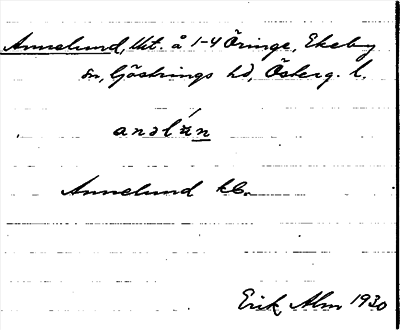 Annelund, Utt. å 1-4 Öringe, Ekeby
sn, Göstrings hd, Österg. l.
Annelund kb.
Erik Alm 1930